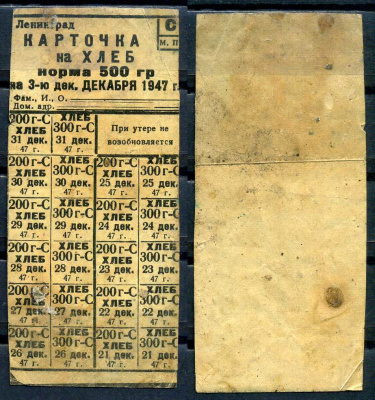 Ленинград
С
М. П
КАРТОЧКА
на ХЛЕБ
норма 500 гр
на 3-ю дек. ДЕКАБРЯ 1947 г.
Фам., И., О.
Дом. адр.
200 г-С ХЛЕБ
ХЛЕБ 300 г-С
31 дек. 31 дек.
47 г. 47 г.
При утере не
возобновляется
200 г-С ХЛЕБ 200 г-С ХЛЕБ
ХЛЕБ 300 г-С ХЛЕБ 300 г-С
30 дек. 30 дек. 25 дек. 25 дек.
47 г. 47 г. 47 г. 47 г.
200 г-С ХЛЕБ 200 г-С ХЛЕБ
ХЛЕБ 300 г-С ХЛЕБ 300 г-С
29 дек. 29 дек. 24 дек. 24 дек.
47 г. 47 г. 47 г. 47 г.
200 г-С ХЛЕБ 200 г-С ХЛЕБ
ХЛЕБ 300 г-С ХЛЕБ 300 г-С
28 дек. 28 дек. 23 дек. 23 дек.
47 г. 47 г. 47 г. 47 г.
200 г-С ХЛЕБ 200 г-С ХЛЕБ
ХЛЕБ 300 г-С ХЛЕБ 300 г-С
27 дек. 27 дек. 22 дек. 22 дек.
47 г. 47 г. 47 г. 47 г.
200 г-С ХЛЕБ 200 г-С ХЛЕБ
ХЛЕБ 300 г-С ХЛЕБ 300 г-С
26 дек. 26 дек. 21 дек. 21 дек.
47 г. 47 г. 47 г. 47 г.